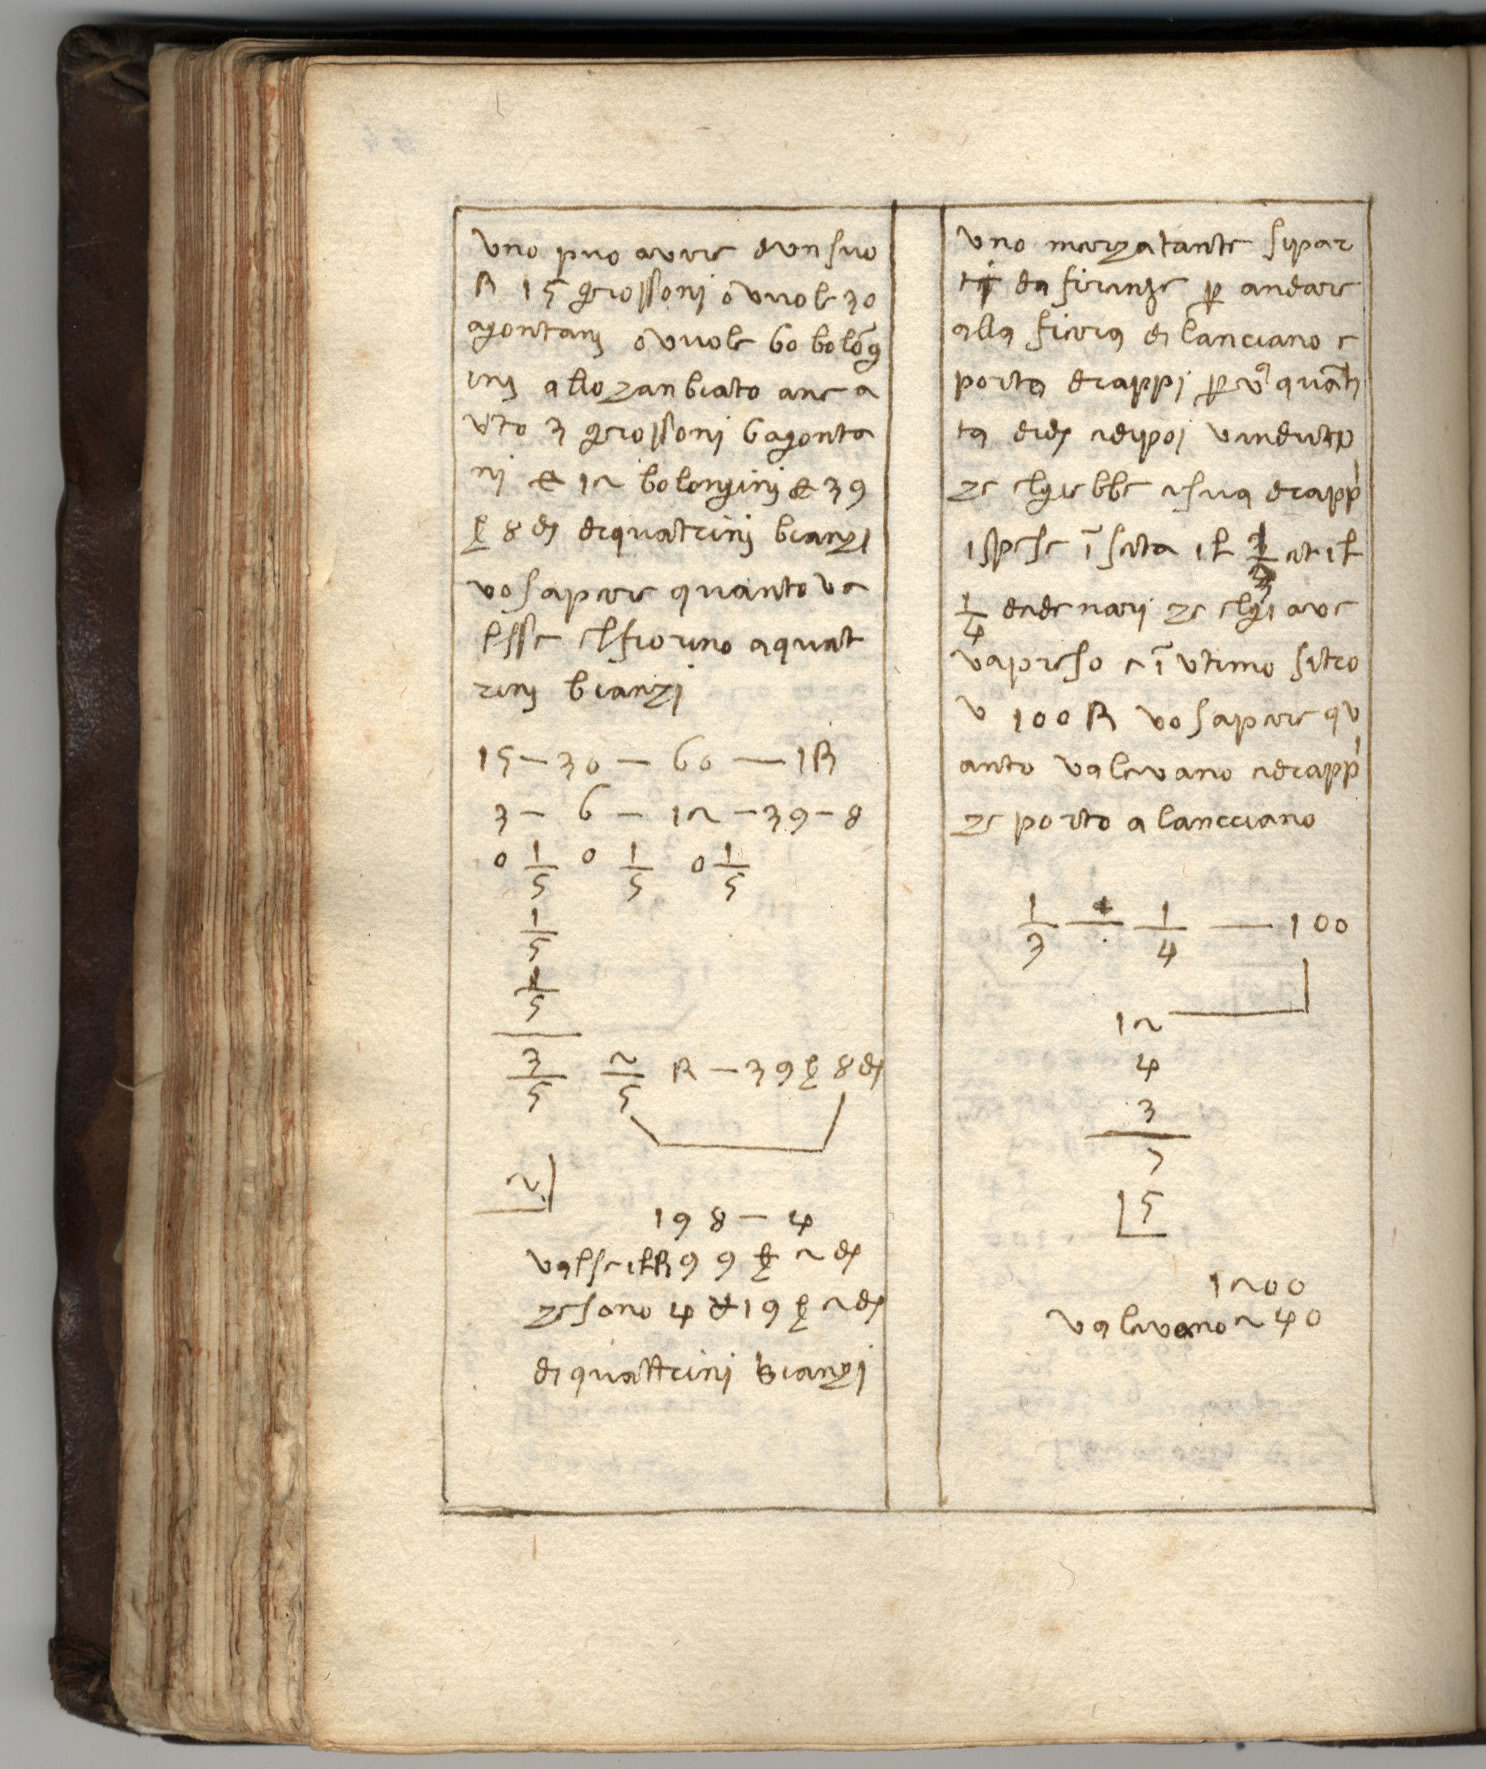 uno puo avere dun suo
R 15 grossoni o vuole 30
agontanj o vuole 60 bologn
inj allo zanbiato ane a
uto 3 grossoni 6 agonta
nj et 12 bolongninj et 39
β 8 dj di quatrinj bianzi
vo sapere quanto va
lesse el fiorino a quat
rinj bianzi
15 — 30 — 60 — 1R
3 — 6 — 12 — 39 — 8
0 1/5 0 1/5 0 1/5
1/5
1/5
3/5 2/5 R — 39 β 8 dj
2
198 — 4
valse il R 9 9 β 2 dj
ze sono 4 19 β 2 dj
di quattrini bianzi
uno merzatante si par
ti da firenze p andare
alla fiera di lanciano e
porta drappi p quanti
ta di dj e dipoi vendute
ze elgiebbe e sua drappi
ispese i seta il 1/3 et il
1/4 de denari ze elgi ave
va preso e i utimo si tro
v 100 R vo sapere qu
anto valevano e drappi
ze porto a lancciano
1/3 — 1/4 — 100
12
4
3
7
5
1200
valevano 240